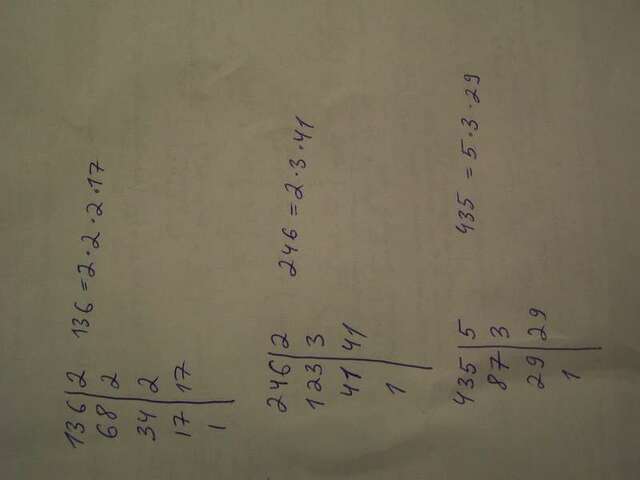 136|2 136 = 2·2·2·17
68|2
34|2
17|17
1|
246|2 246 = 2·3·41
123|3
41|41
1|
435|5 435 = 5·3·29
87|3
29|29
1|